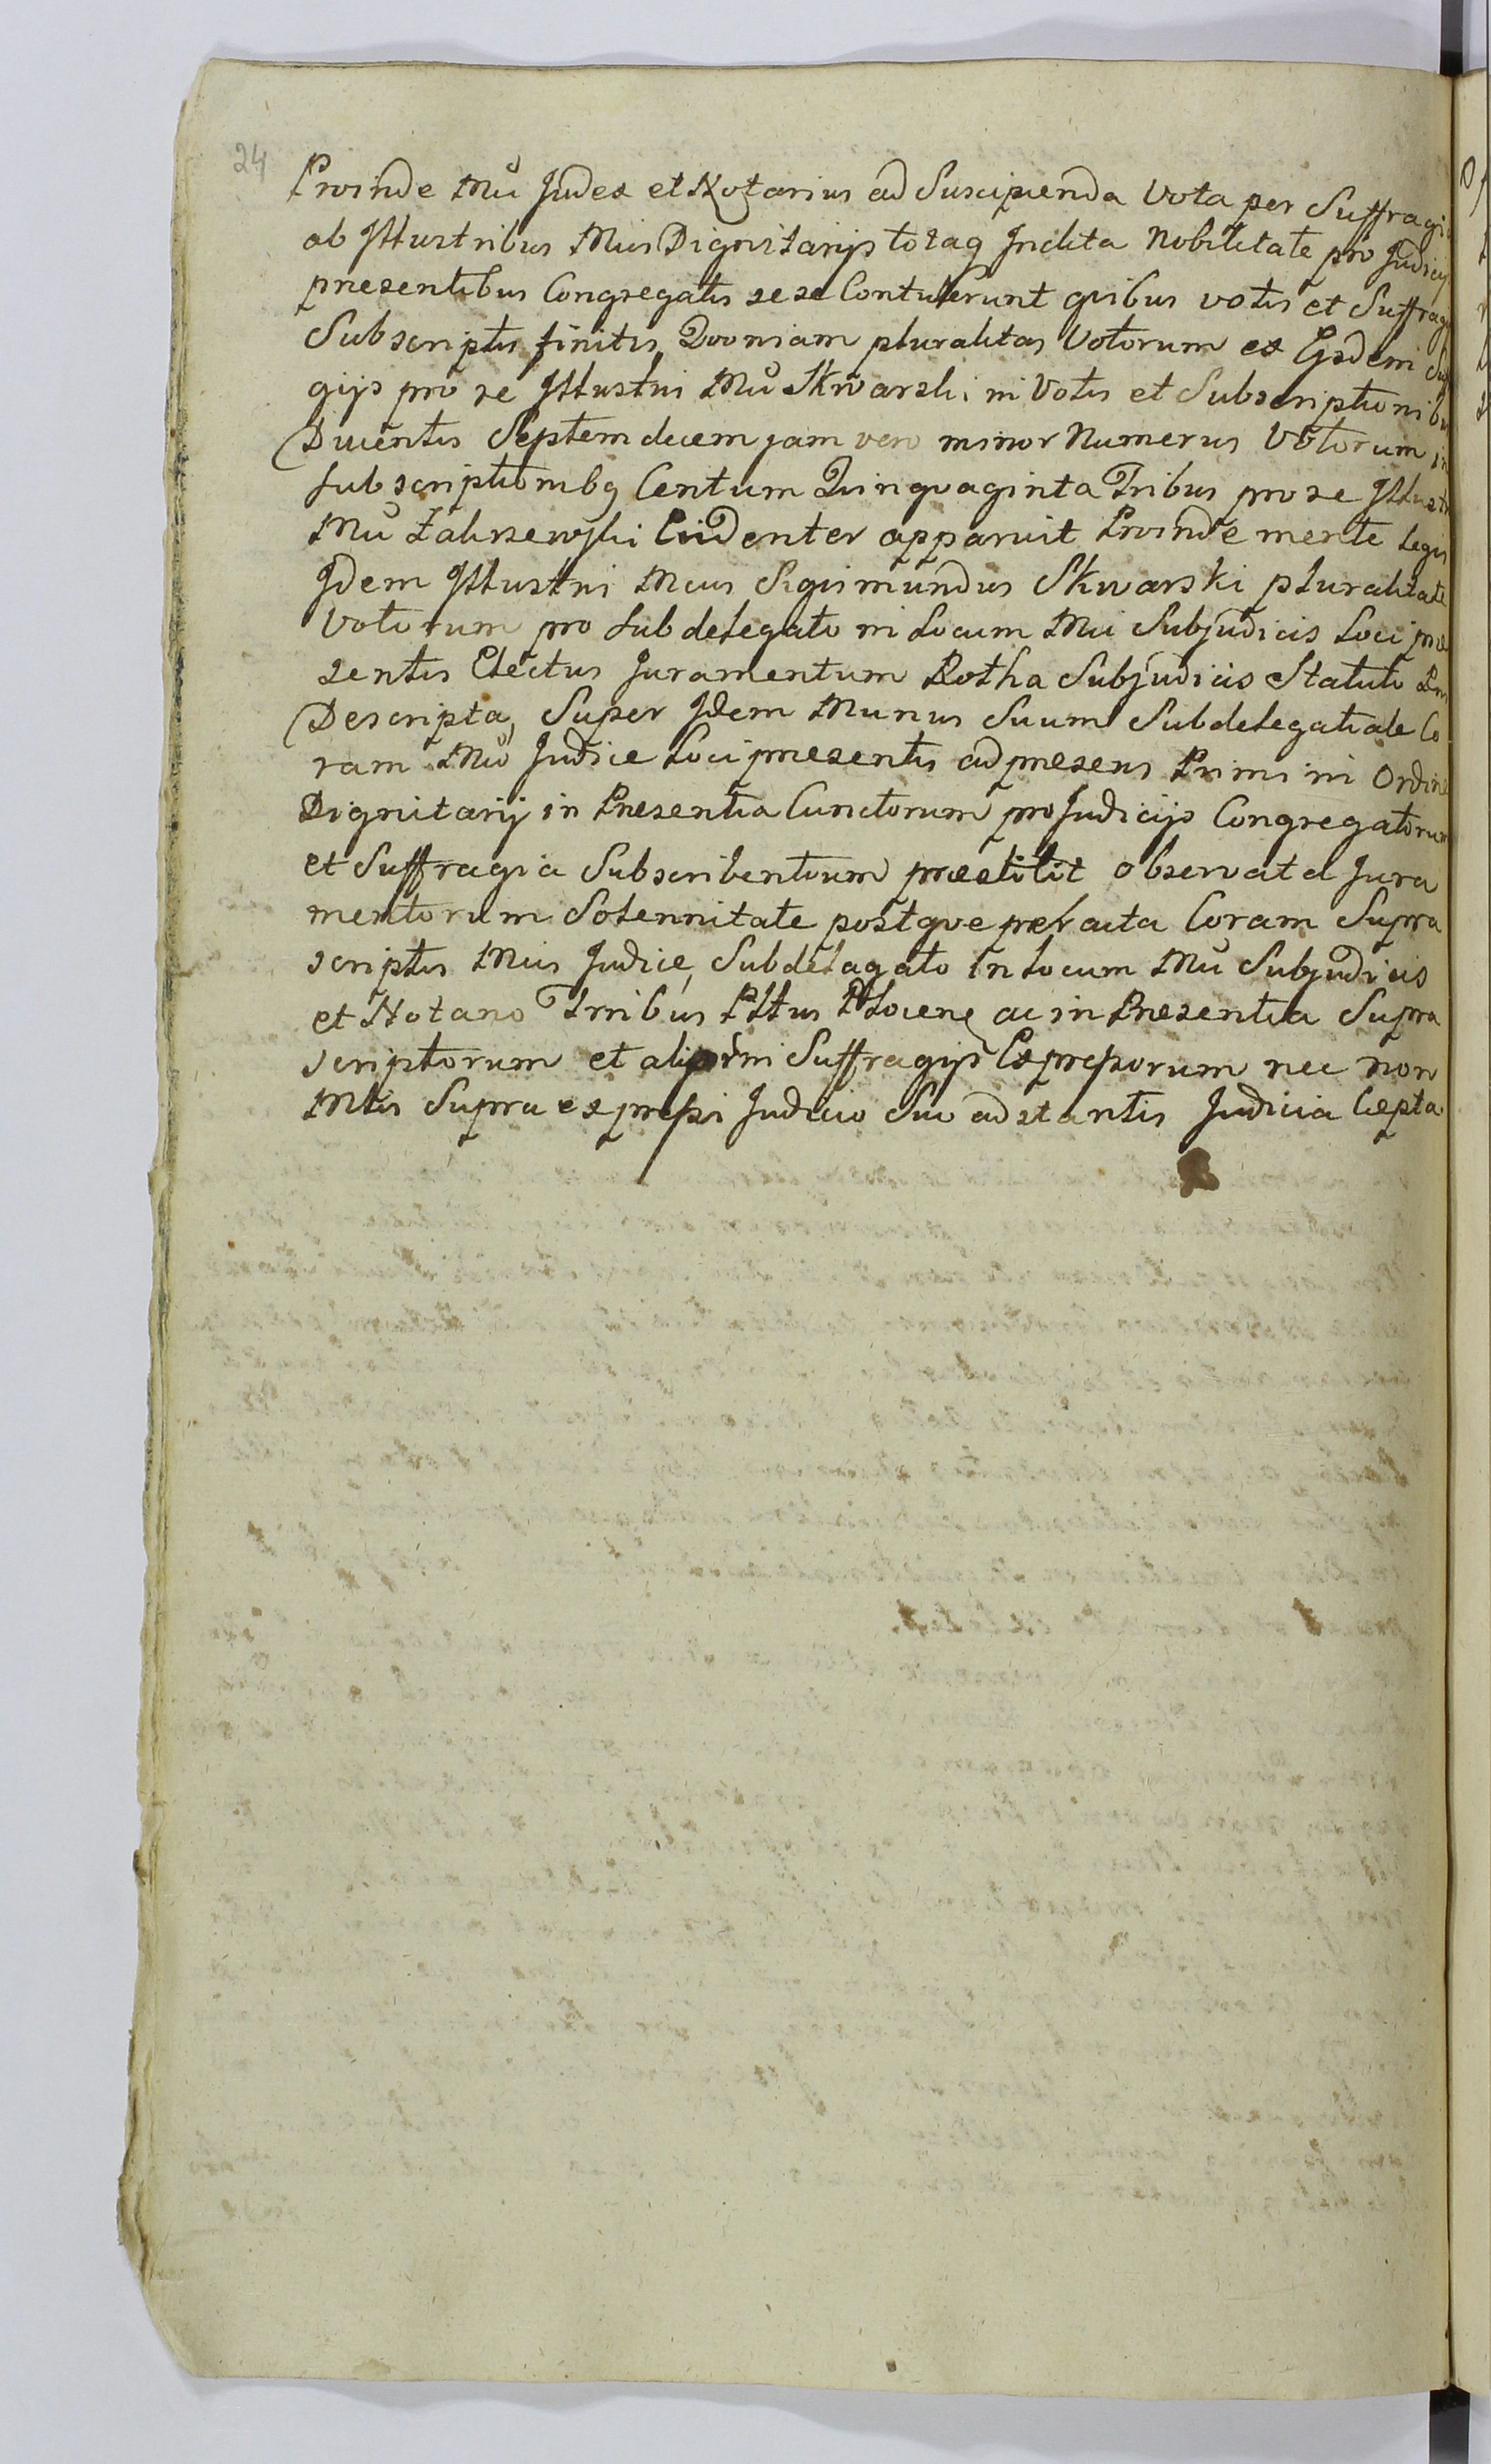 24
Proinde Mci Judex et Notarius ad Suscipienda Vota per Suffragia
ab Illustribus Mcis Dignitarijs totaq Indita Nobilitate pro Judicijs
presentibus Congregatis sese Contulerunt quibus votis et Suffrag
Subscriptis finitis, Quoniam pluralitas Votorum ex Ejsdem Suf
gijs pro se Illustri Mco Skwarski in Votis et Subscriptionibus
Ducentis Septemdecem jam vero minor Numerus Votorum in
subscriptionibq Centum Quinquaginta Tribus pro se Illustri
Mco Zakrzewski Evidenter apparuit Proinde mente legis
Idem Illustris Mcus Sigismundus Skwarski pluralitate
Votorum pro Subdelegato in Locum Mci Subjudicis Loci prae
sentis Electus Juramentum Rotha Subjudicis Statuto
Descripta, Super Idem Munus Suum Subdelegatiale Co
ram Mco Judice Loci presentis ad presens Primi in Ordine
Dignitarij in Presentia Cunctorum pro Judicijs Congregatorum
et Suffragia Subscribentium praestitit observata Jura
mentorum Solennitate postque peracta Coram Supra
scriptis Mcis Judice, Subdelagato in locum Mci Subjudicis
et Notario Trribus Plocen ac in Presentia Supra
scriptorum et in Suffragijs Expressorum nec non
Mtis Supra expressi Judicio Suo adstantis Judicia Cepta